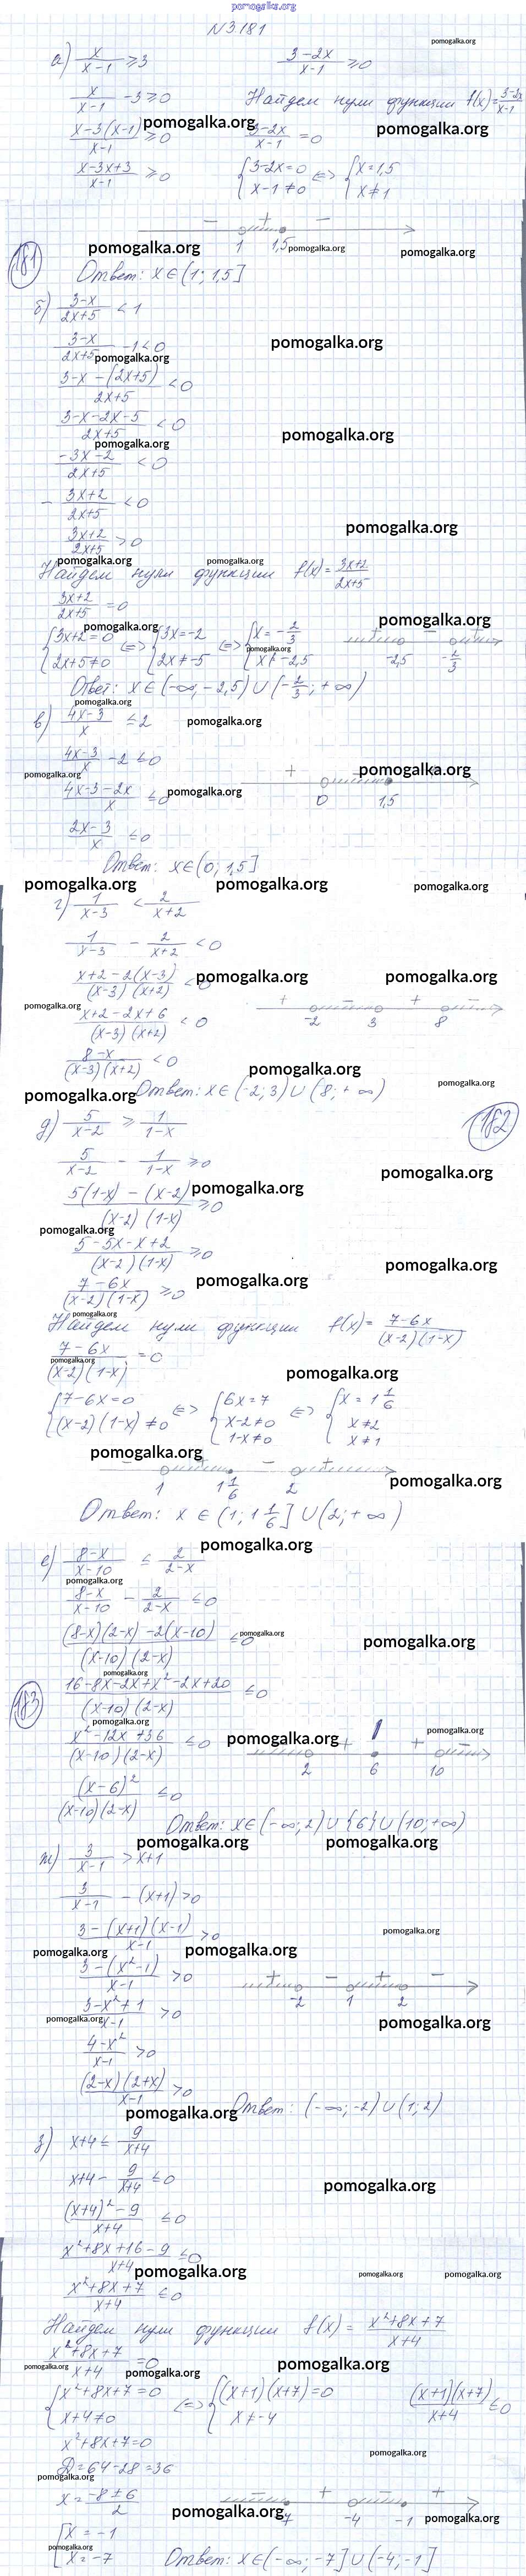 pomogalka.org
N3.181
а) x/(x-1) ≥ 3
(3-2x)/(x-1) ≥ 0
pomogalka.org
x/(x-1) - 3 ≥ 0
Найдем нули функции f(x) = (3-2x)/(x-1)
pomogalka.org
pomogalka.org
(x-3(x-1))/(x-1) ≥ 0
(3-2x)/(x-1) = 0
(x-3x+3)/(x-1) ≥ 0
{3-2x=0 x-1≠0 <=> {x=1,5 x≠1
- + -
1 1,5
pomogalka.org
pomogalka.org
pomogalka.org
181
Ответ: x∈(1; 1,5]
б) (3-x)/(2x+5) < 1
(3-x)/(2x+5) - 1 < 0
pomogalka.org
pomogalka.org
(3-x-(2x+5))/(2x+5) < 0
(3-x-2x-5)/(2x+5) < 0
pomogalka.org
pomogalka.org
(-3x-2)/(2x+5) < 0
- (3x+2)/(2x+5) < 0
pomogalka.org
(3x+2)/(2x+5) > 0
pomogalka.org
pomogalka.org
Найдем нули функции f(x) = (3x+2)/(2x+5)
(3x+2)/(2x+5) = 0
pomogalka.org
pomogalka.org
{3x+2=0 2x+5≠0 <=> {3x=-2 2x≠-5 <=> {x=-2/3 x≠-2,5
pomogalka.org
+ - +
-2,5 -2/3
Ответ: x∈(-∞; -2,5)∪(-2/3; +∞)
pomogalka.org
в) (4x-3)/x ≤ 2
pomogalka.org
(4x-3)/x - 2 ≤ 0
pomogalka.org
pomogalka.org
+
0 1,5
(4x-3-2x)/x ≤ 0
pomogalka.org
(2x-3)/x ≤ 0
Ответ: x∈(0; 1,5]
pomogalka.org
pomogalka.org
pomogalka.org
г) 1/(x-3) < 2/(x+2)
1/(x-3) - 2/(x+2) < 0
(x+2-2(x-3))/((x-3)(x+2)) < 0
pomogalka.org
pomogalka.org
pomogalka.org
(x+2-2x+6)/((x-3)(x+2)) < 0
+ - + -
-2 3 8
(8-x)/((x-3)(x+2)) < 0
pomogalka.org
pomogalka.org
pomogalka.org
Ответ: x∈(-2; 3)∪(8; +∞)
д) 5/(x-2) ≥ 1/(1-x)
182
5/(x-2) - 1/(1-x) ≥ 0
pomogalka.org
(5(1-x)-(x-2))/((x-2)(1-x)) ≥ 0
pomogalka.org
pomogalka.org
(5-5x-x+2)/((x-2)(1-x)) ≥ 0
pomogalka.org
pomogalka.org
(7-6x)/((x-2)(1-x)) ≥ 0
pomogalka.org
Найдем нули функции f(x) = (7-6x)/((x-2)(1-x))
(7-6x)/((x-2)(1-x)) = 0
pomogalka.org
pomogalka.org
{7-6x=0 (x-2)(1-x)≠0 <=> {6x=7 x-2≠0 1-x≠0 <=> {x=1 1/6 x≠2 x≠1
pomogalka.org
- + - +
1 1 1/6 2
pomogalka.org
Ответ: x∈(1; 1 1/6]∪(2; +∞)
pomogalka.org
е) (8-x)/(x-10) ≤ 2/(2-x)
pomogalka.org
(8-x)/(x-10) - 2/(2-x) ≤ 0
((8-x)(2-x)-2(x-10))/((x-10)(2-x)) ≤ 0
pomogalka.org
pomogalka.org
pomogalka.org
(16-8x-2x+x²-2x+20)/((x-10)(2-x)) ≤ 0
183
pomogalka.org
pomogalka.org
pomogalka.org
(x²-12x+36)/((x-10)(2-x)) ≤ 0
+ + -
2 6 10
(x-6)²/((x-10)(2-x)) ≤ 0
Ответ: x∈(-∞; 2)∪{6}∪(10; +∞)
pomogalka.org
pomogalka.org
ж) 3/(x-1) > x+1
3/(x-1) - (x+1) > 0
(3-(x+1)(x-1))/(x-1) > 0
pomogalka.org
pomogalka.org
pomogalka.org
(3-(x²-1))/(x-1) > 0
+ - + -
-2 1 2
(3-x²+1)/(x-1) > 0
pomogalka.org
pomogalka.org
(4-x²)/(x-1) > 0
((2-x)(2+x))/(x-1) > 0
Ответ: (-∞; -2)∪(1; 2)
pomogalka.org
з) x+4 ≤ 9/(x+4)
x+4 - 9/(x+4) ≤ 0
pomogalka.org
((x+4)²-9)/(x+4) ≤ 0
(x²+8x+16-9)/(x+4) ≤ 0
pomogalka.org
pomogalka.org
pomogalka.org
(x²+8x+7)/(x+4) ≤ 0
Найдем нули функции f(x) = (x²+8x+7)/(x+4)
(x²+8x+7)/(x+4) = 0
pomogalka.org
pomogalka.org
pomogalka.org
{x²+8x+7=0 x+4≠0 <=> {(x+1)(x+7)=0 x≠-4
((x+1)(x+7))/(x+4) ≤ 0
x²+8x+7=0
pomogalka.org
D=64-28=36
pomogalka.org
x = (-8±6)/2
- + - +
-7 -4 -1
pomogalka.org
pomogalka.org
[x=-1 x=-7
pomogalka.org
Ответ: x∈(-∞; -7]∪(-4; -1]